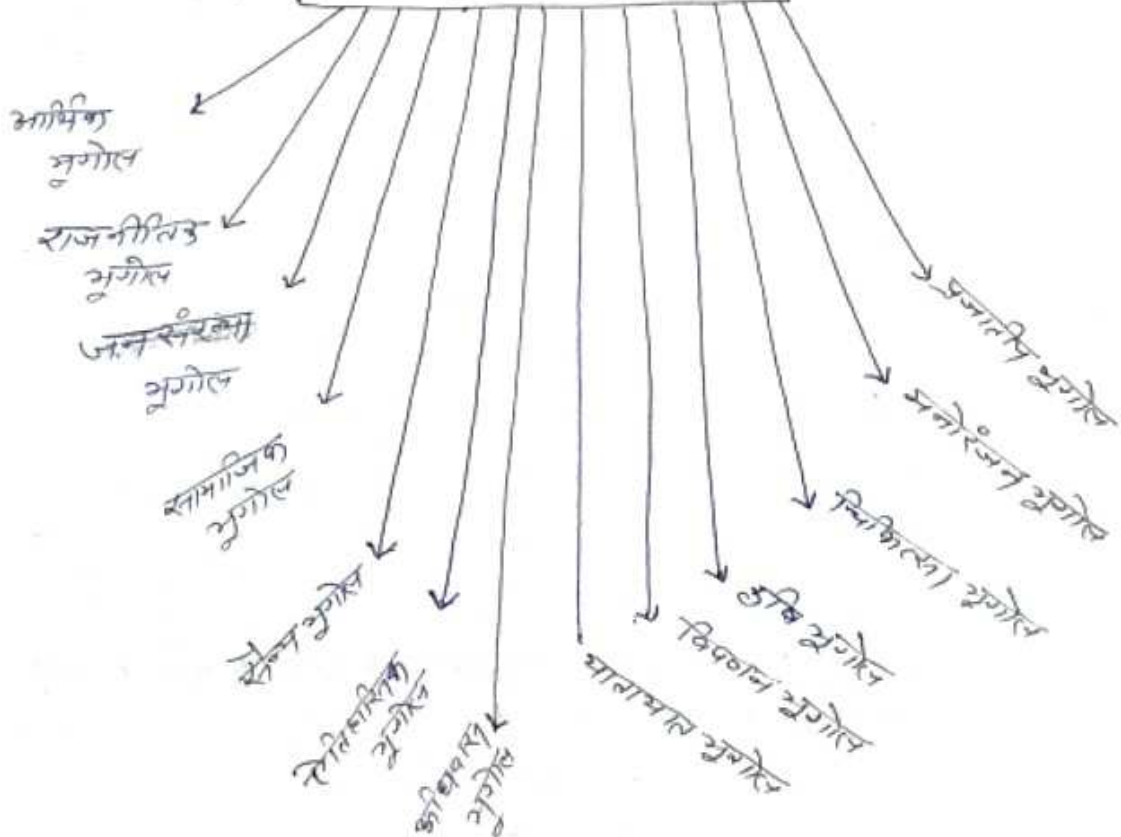 आर्थिक
भूगोल
राजनीतिक
भूगोल
जनसंख्या
भूगोल
सामाजिक
भूगोल
सैन्य भूगोल
ऐतिहासिक
भूगोल
अधिवास
भूगोल
यातायात भूगोल
विपणन भूगोल
कृषि भूगोल
चिकित्सा भूगोल
मनोरंजन भूगोल
प्रजातीय भूगोल